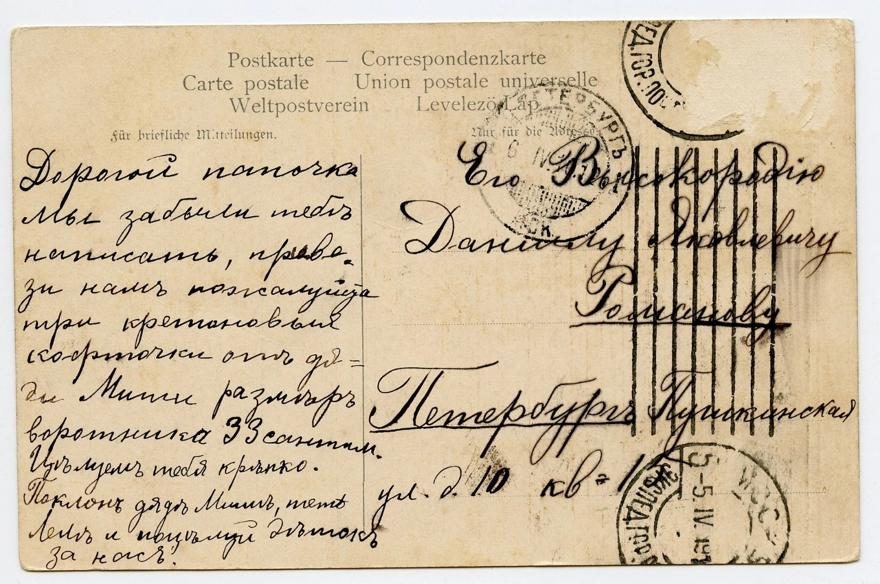 Postkarte — Correspondenzkarte
Carte postale Union postale universelle
Weltpostverein Levelező-Lap
Für briefliche Mitteilungen.
Nur für die Adresse
Дорогой папочка
мы забыли тебѣ
написать, приве-
зи намъ пожалуйста
три кретоновыя
кофточки отъ дя-
ди Миши размѣръ
воротника 33 сантим.
Цѣлуемъ тебя крѣпко.
Поклонъ дядѣ Мишѣ, тетѣ
Лелѣ и поцѣлуй дѣтокъ
за насъ.
Его Высокородію
Даніилу Яковлевичу
Романову
Петербургъ Пушкинская
ул. д. 10 кв
ПЕТЕРБУРГЪ
6 IV
5-5. IV. 19